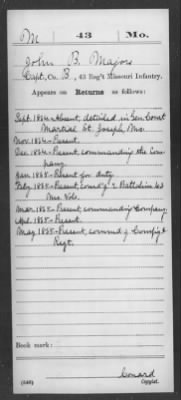 M 43 Mo.
John B. Majors
Capt., Co. B, 43 Reg't Missouri Infantry.
Appears on Returns as follows:
Sept. 1864-Absent, detailed in Gen Court
Martial St. Joseph, Mo.
Nov. 1864-Present.
Dec. 1864-Present, commanding the Com
pany.
Jan. 1865-Present for duty
Feb'y 1865-Present, Comd'g 2 Battalion 43
Mo. Vols.
Mar. 1865-Present, commanding Company
Apl. 1865-Present.
May 1865-Present, command'g Comp'y &
Regt.
Book mark:
(546)
Conard
Copyist.